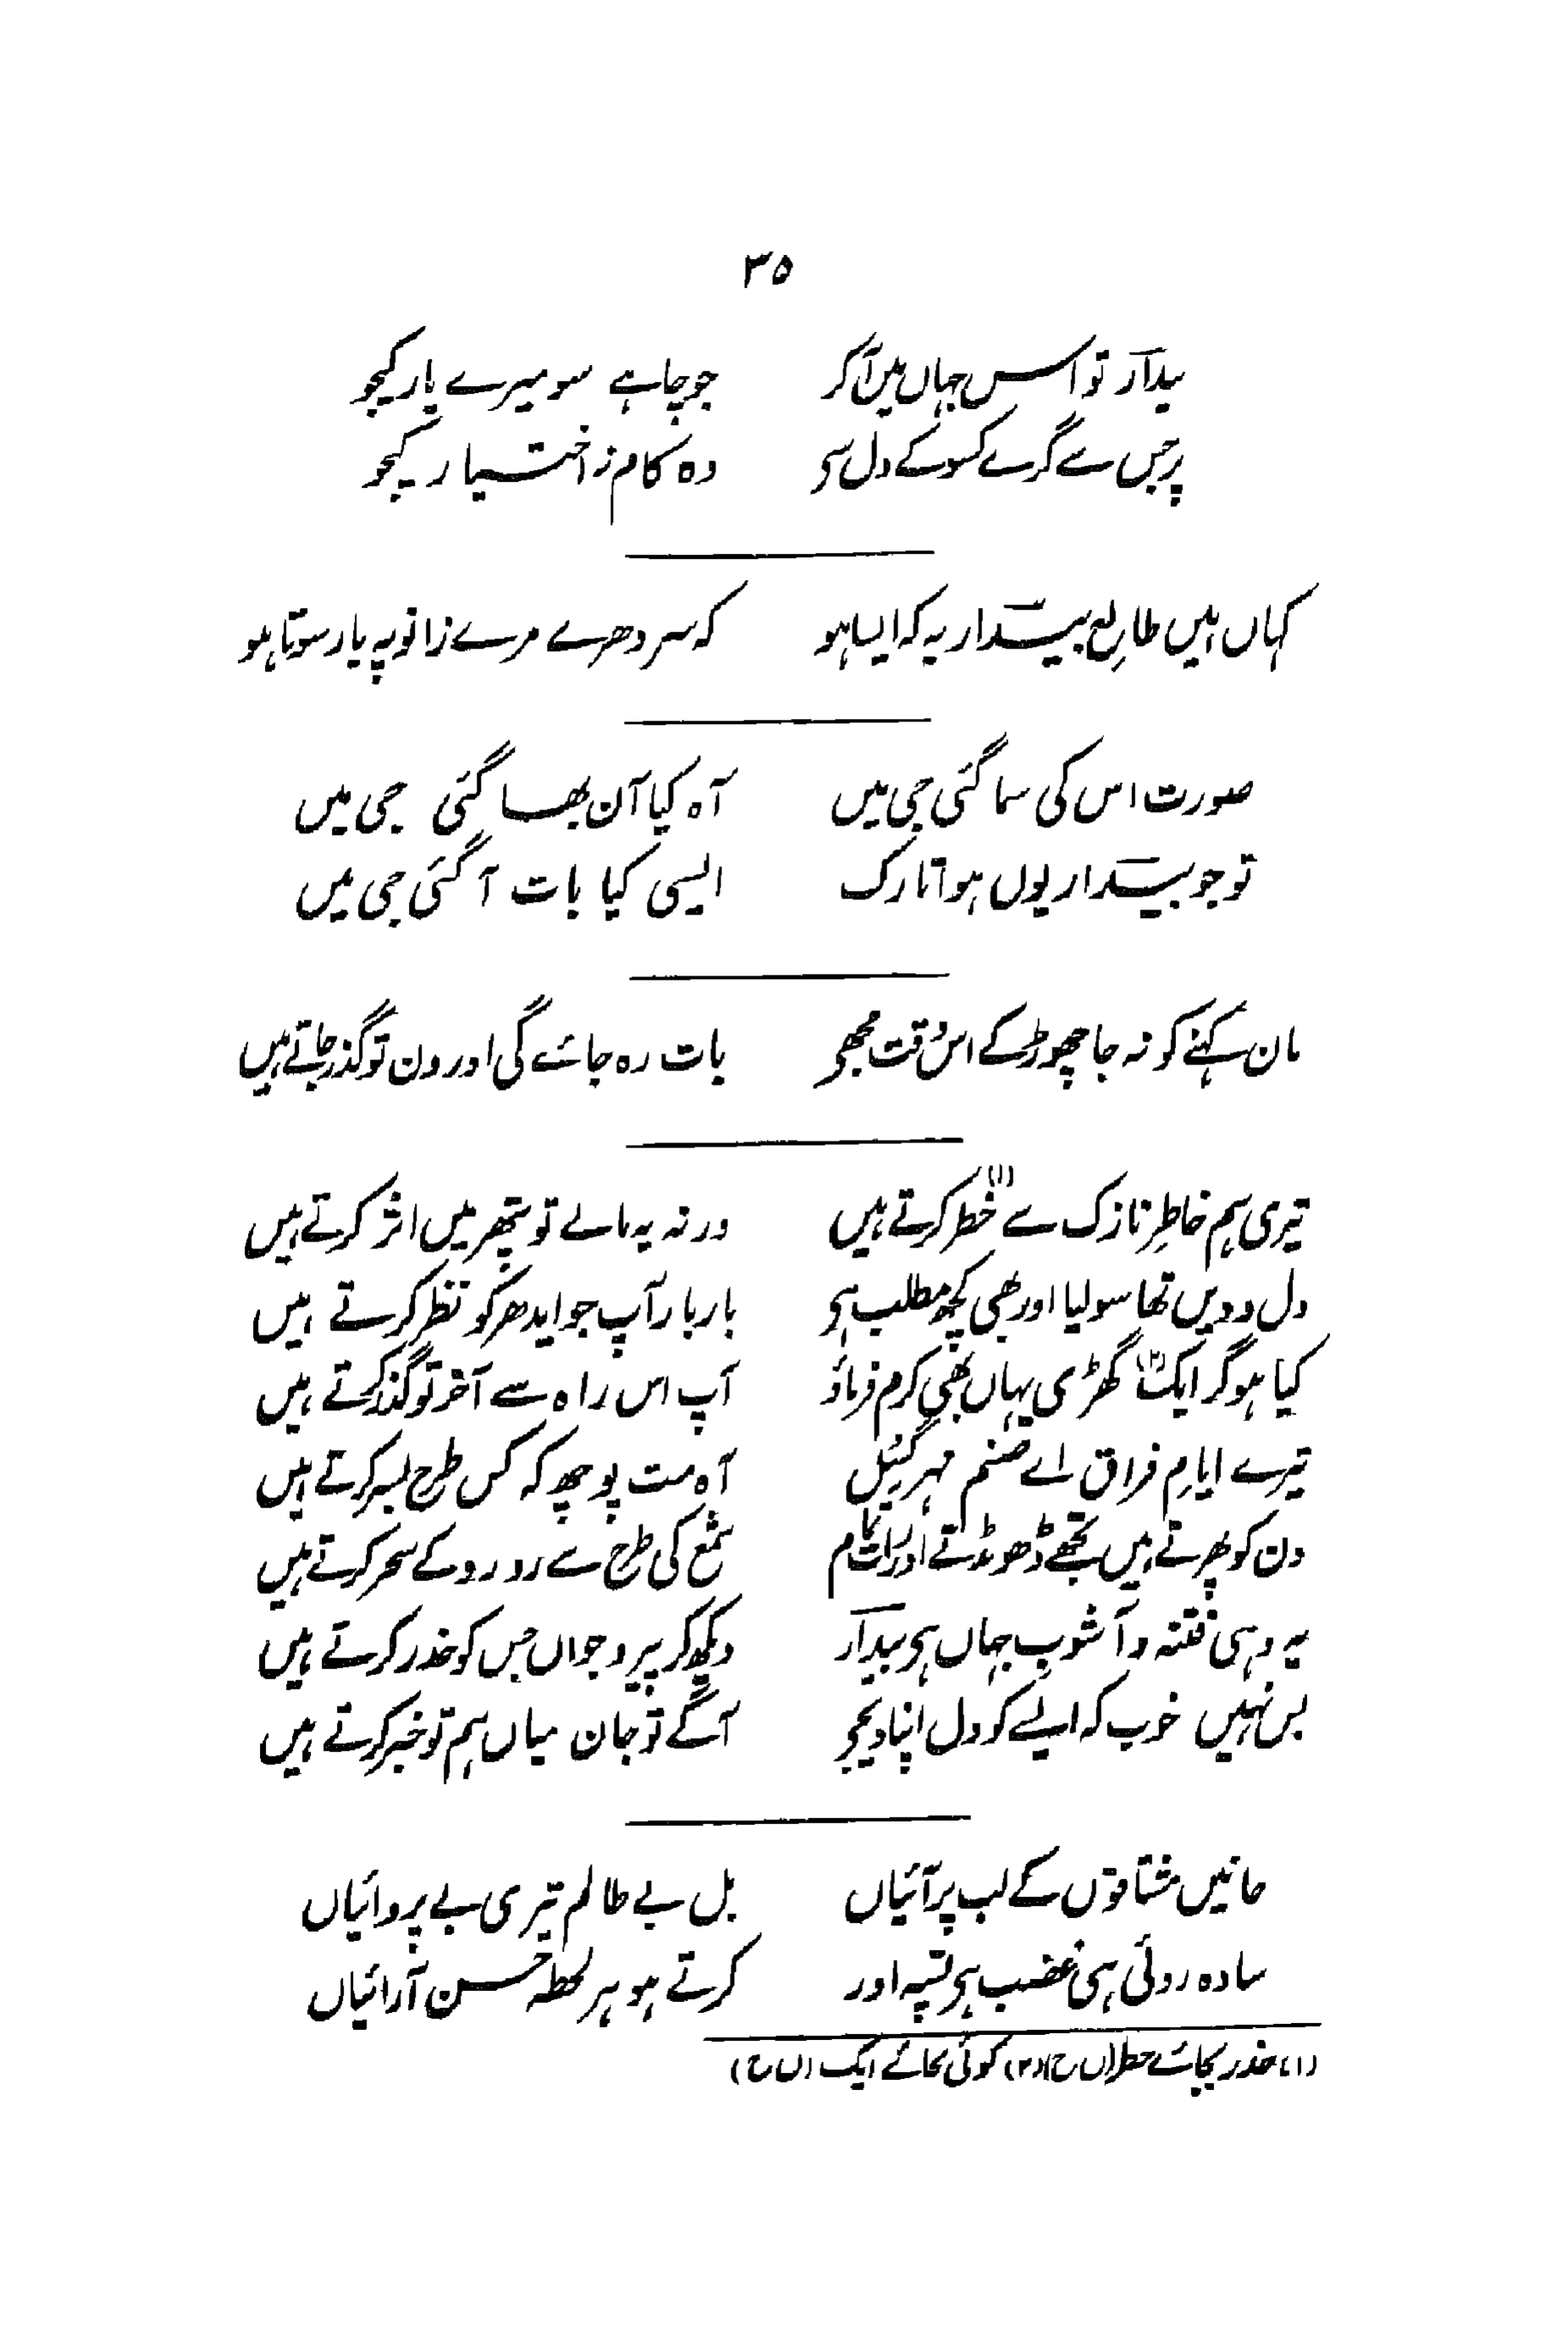 ۳۵
بیدار تو اس جہاں میں آ کر جو چاہے سو میرے یار کیجو
پر جس سے گرے کسو کے دل سی وہ کام نہ اختیار کیجو
کہاں ہیں طالعِ بیدار یہ کہ ایسا ہو کہ سر دھرے مرے زانو پہ یار سوتا ہو
صورت اس کی سما گئی جی میں آہ کیا آن بھا گئی جی میں
تو جو بیدار یوں ہوا تارک ایسی کیا بات آ گئی جی میں
مان کہنے کو نہ جا چھوڑ کے اس وقت مجھے بات رہ جائے گی اور دن تو گذر جاتے ہیں
تیری ہم خاطرِ نازک سے خطر(۱) کرتے ہیں ورنہ یہ نالے تو پتھر میں اثر کرتے ہیں
دل و دیں تھا سو لیا اور بھی کچھ مطلب ہی بار بار آپ جو ایدھر کو نظر کرتے ہیں
کیا ہو گر ایک(۲) گھڑی یہاں بھی کرم فرماؤ آپ اس راہ سے آخر تو گذر کرتے ہیں
تیرے ایامِ فراق اے صنم مہر گسل آہ مت پوچھ کہ کس طرح بسر کرتے ہیں
دن کو پھرتے ہیں تجھے ڈھونڈتے اور رات تمام شمع کی طرح سے رو رو کے سحر کرتے ہیں
یہ وہی فتنہ و آشوبِ جہاں ہی بیدار دیکھ کر پیر و جواں جس کو حذر کرتے ہیں
بس نہیں خوب کہ ایسے کو دل اپنا دیجے آگے تو جان میاں ہم تو خبر کرتے ہیں
جانیں مشتاقوں کے لب پر آئیاں بل بے ظالم تیری بے پروائیاں
سادہ روئی ہی غضب ہی تسپہ اور کرتے ہو ہر لحظہ حسن آرائیاں
(۱) حذر بجائے خطر (ل ح) (۲) کوئی بجائے ایک (ل ح)